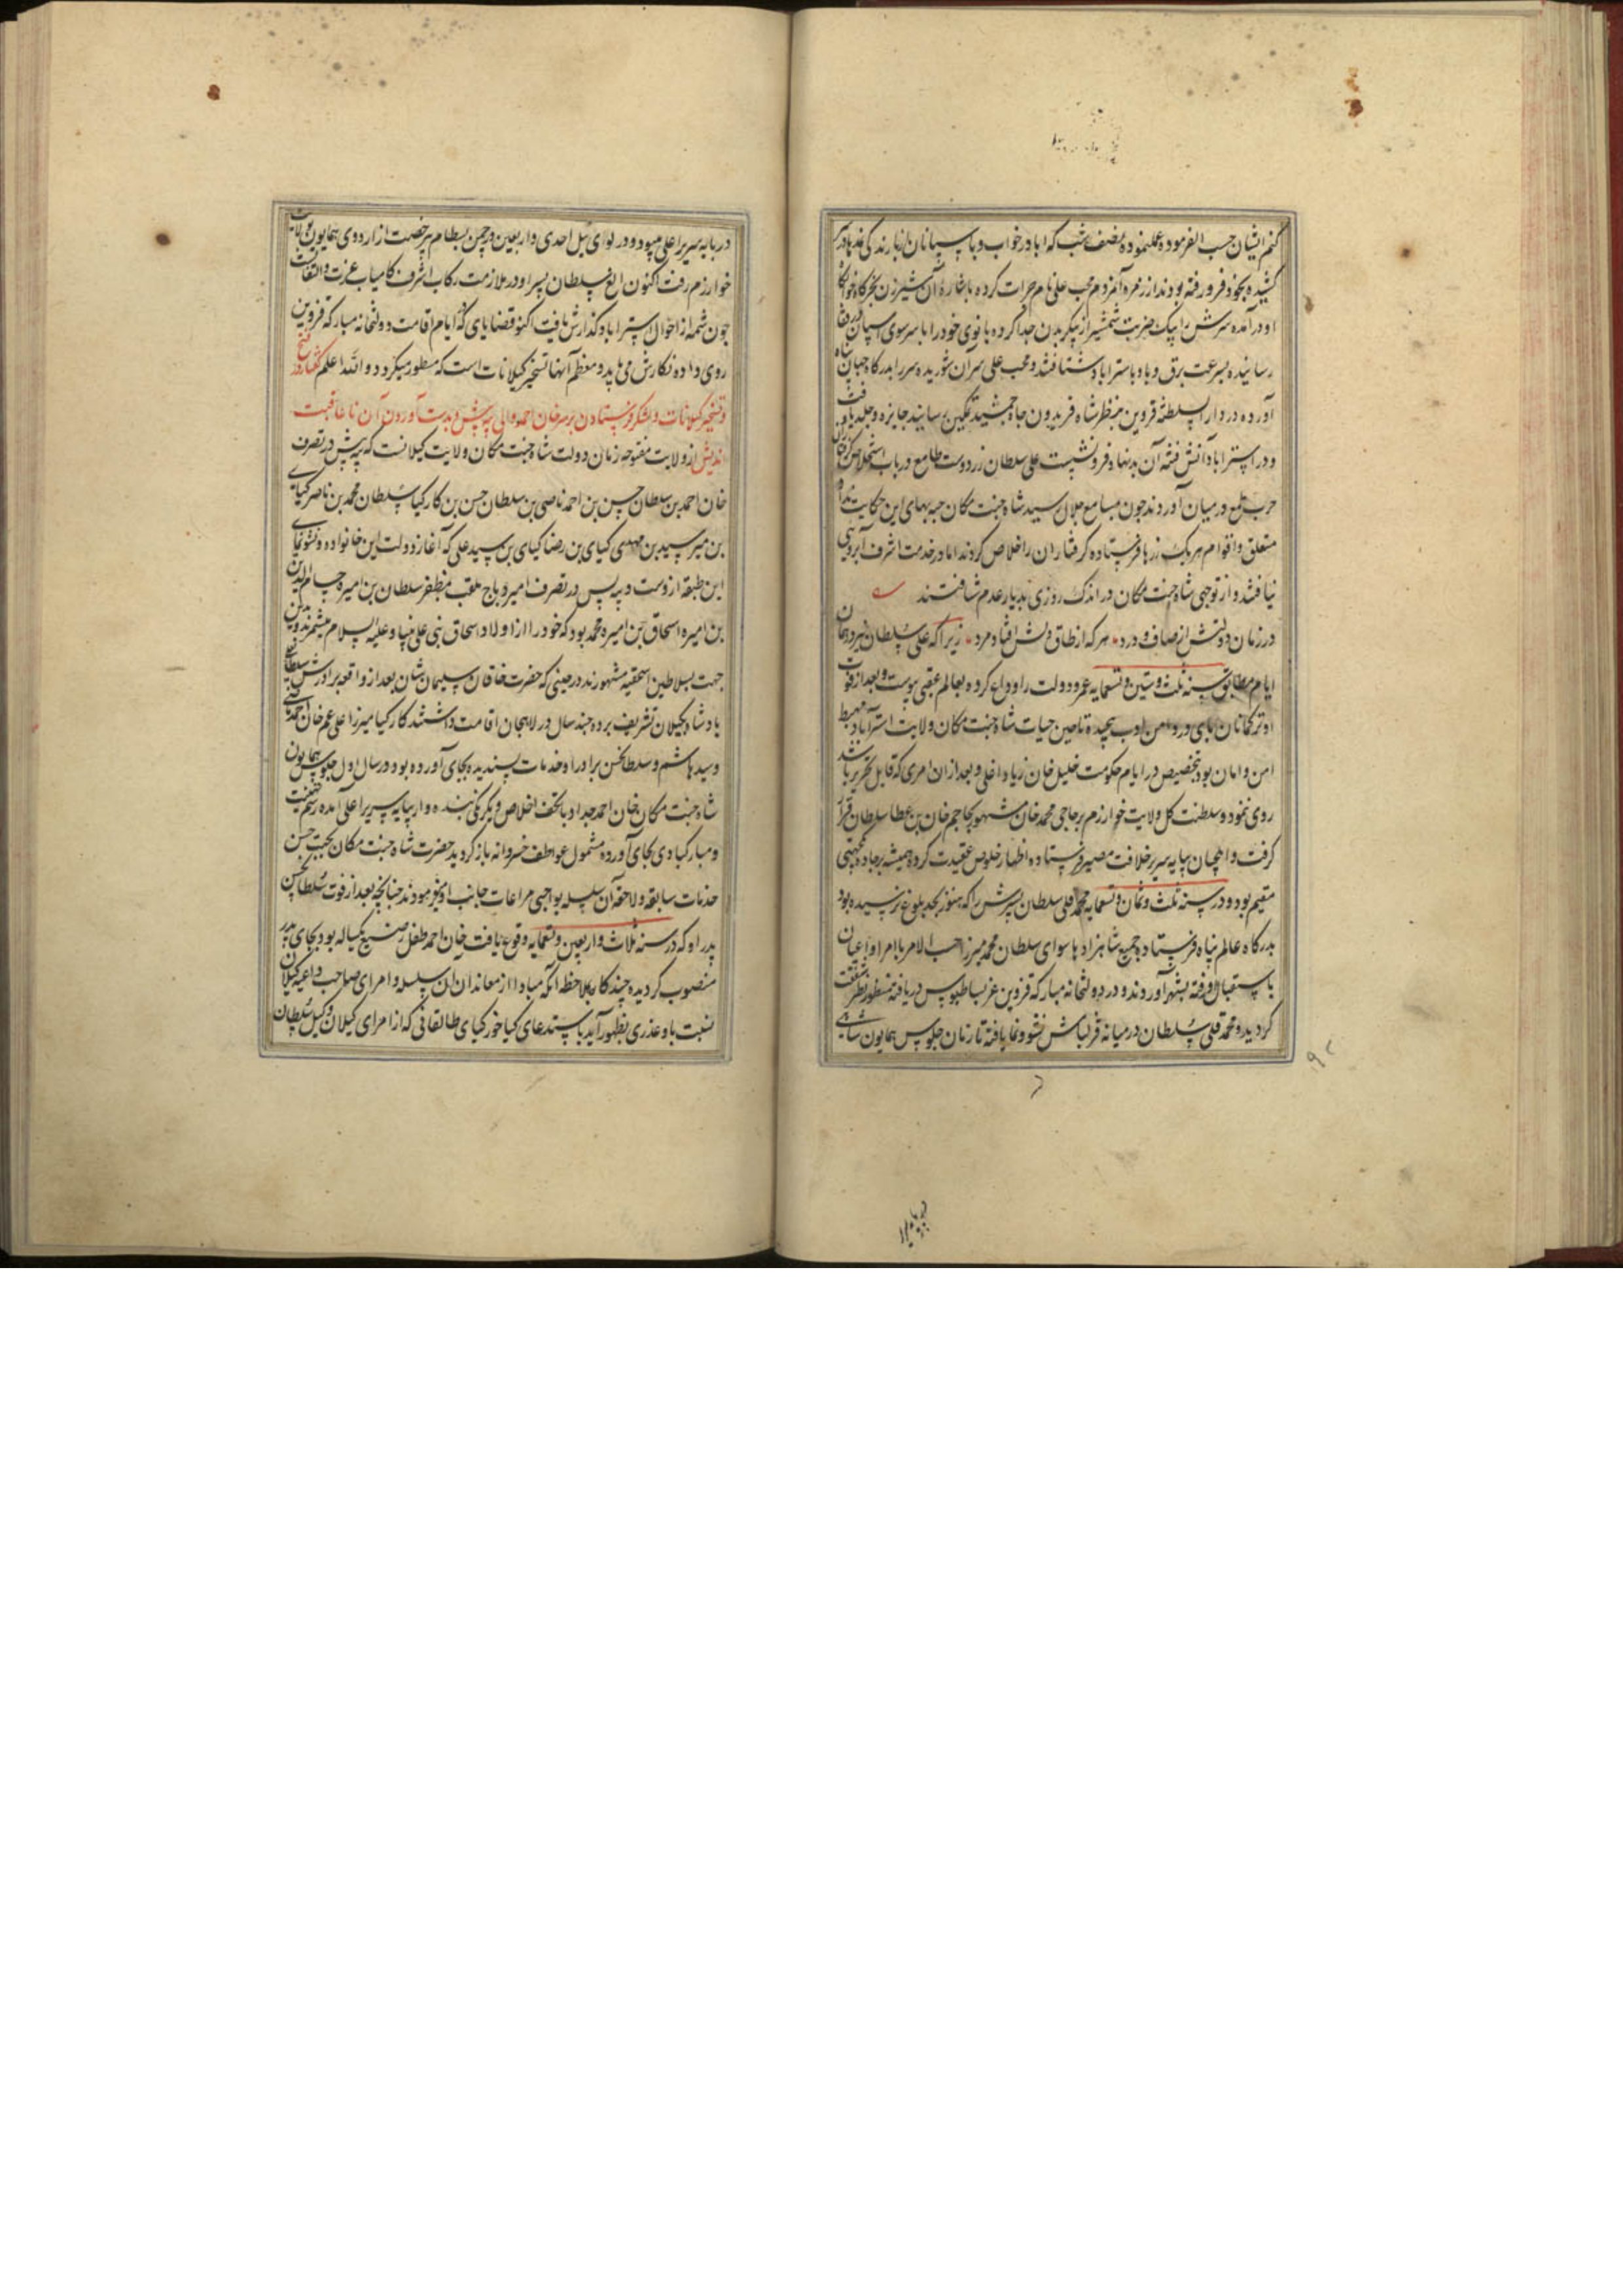 کنم ایشان حسب الفرموده عمل نموده نصف شب که ابا در خواب و پاسبانان از باده
کشیده بیخود فرو رفته بودند از زمره آن مردم محب علی نام جرات کرده باشاره آن شیرزن بخرگاه خوابگاه
او در آمده سرش را بیک ضربت شمشیر از پیکر بدن جدا کرده بانوی خود را با سر سوی اسپان
رسانیده بسرعت برق و باد باستراباد شتافتند و محب علی سر آن شوریده سر را بدرگاه جهان پناه
آورده در دار السلطنه قزوین بنظر شاه فریدون جاه جمشید نگین رسانید جایزه و جلدو یافت
و در استراباد آتش فتنه آن بدنهاد فرو نشست علی سلطان زردوست طامع در باب استخلاص
حرب طمع در میان آوردند چون بمسامع جلال رسید شاه جنت مکان جبه بهای این حکایت
متعلق و اقوام هر یک زرها فرستاده گرفتاران را خلاص کردند اما در خدمت اشرف آبرویی
نیافتند و از توجهی شاه جنت مکان در اندک روزی بدیار عدم شتافتند
در زمان دولتش از صاف و درد هر که از طاق دلش افتاد مرد زیرا که علی سلطان نیز در همان
ایام مطابق سنه ثلث و ستین و تسعمایه عمر و دولت را وداع کرده بعالم عقبی پیوست و بعد از فوت
او ترکمانان پای در دامن ادب پیچیده تا حین حیات شاه جنت مکان ولایت استراباد مهبط
امن و امان بود بتخصیص در ایام حکومت خلیل خان زیاد اغلی و بعد از ان امری که قابل تحریر باشد
روی ننمود و سلطنت کل ولایت خوارزم بر حاجی محمد خان مشهور بحاجم خان بن عطا سلطان قرار
گرفت و ایلچیان بپایه سریر خلافت مصیر فرستاده اظهار خلوص عقیدت کرده همیشه بر جاده یکجهتی
مقیم بود و در سنه ثلث و ثمان و تسعمایه محمد قلی سلطان پسرش را که هنوز بحد بلوغ نرسیده بود
بدرگاه عالم پناه فرستاده جمیع شاهزادها سوای سلطان محمد میرزا حسب الامر با امرا و اعیان
باستقبال او رفته بشهر آوردند و در دولتخانه مبارکه قزوین عز بساط بوس دریافته منظور نظر شفقت
گردید و محمد قلی سلطان در میانه قزلباش نشو و نما یافته تا زمان جلوس همایون شاهی
در پایه سریر اعلی میبود و در لوای ئیل احدی و اربعین در چمن بسطام مرخصت از اردوی همایون بولایت
خوارزم رفت اکنون الغ سلطان پسر او در ملازمت رکاب اشرف کامیاب عزت و التفاتست
چون شمه از احوال استراباد گذارش یافت اکنون قضایای که در ایام اقامت دولتخانه مبارکه قزوین
روی داده نگارش می یابد و معظم آنها تسخیر گیلانات است که مسطور میگردد و الله اعلم گفتار در فتح
و تسخیر گیلانات و لشکر فرستادن بر سر خان احمد والی بیه پیش و بدست آوردن آن ناعاقبت
اندیش از ولایت مفتوحه زمان دولت شاه جنت مکان ولایت گیلانست که بیه پیش در تصرف
خان احمد بن سلطان حسن بن احمد ناصی بن سلطان حسن بن کارکیا سلطان محمد بن ناصر کیای
بن میر سید بن مهدی کیای بن رضا کیای بن سید علی که آغاز دولت این خانواده و نشو نمای
این طبقه ازوست و بیه پس در تصرف امیره دباج ملقب بمظفر سلطان بن امیره حسام الدین
بن امیره اسحاق بن امیره محمد بود که خود را از اولاد اسحاق نبی علی نبینا و علیه السلام میشمرند و بدین
جهت بسلاطین اسحقیه مشهورند در حینی که حضرت خاقان سلیمان شان بعد از واقعه برادرش سلطان علی
پادشاه بگیلان تشریف برده چند سال در لاهجان اقامت داشتند کارکیا میرزا علی عم خان احمد
و سید هاشم و سلطان حسن برادر او خدمات پسندیده بجای آورده بود و در سال اول جلوس همایون
شاه جنت مکان خان احمد جد او با تحف اخلاص و یکرنگی بنده وار بپایه سریر اعلی آمده رسم تهنیت
و مبارکبادی بجای آورده مشمول عواطف خسروانه باز گردید حضرت شاه جنت مکان بجهت حسن
خدمات سابقه و لاحقه آن سلسله بواجبی مراعات جانب او میفرمودند چنانچه بعد از فوت سلطان حسن
پدر او که در سنه ثلاث و اربعین و تسعمایه وقوع یافت خان احمد طفل رضیع یکساله بود بجای پدر
منصوب گردیده چند گاه بملاحظه آنکه مبادا از معاندان ان سلسله و امرای صاحب داعیه گیلان
نسبت باو غدری بظهور آید باستدعای کیا خور کیای طالقانی که از امرای گیلان و وکیل سلطان